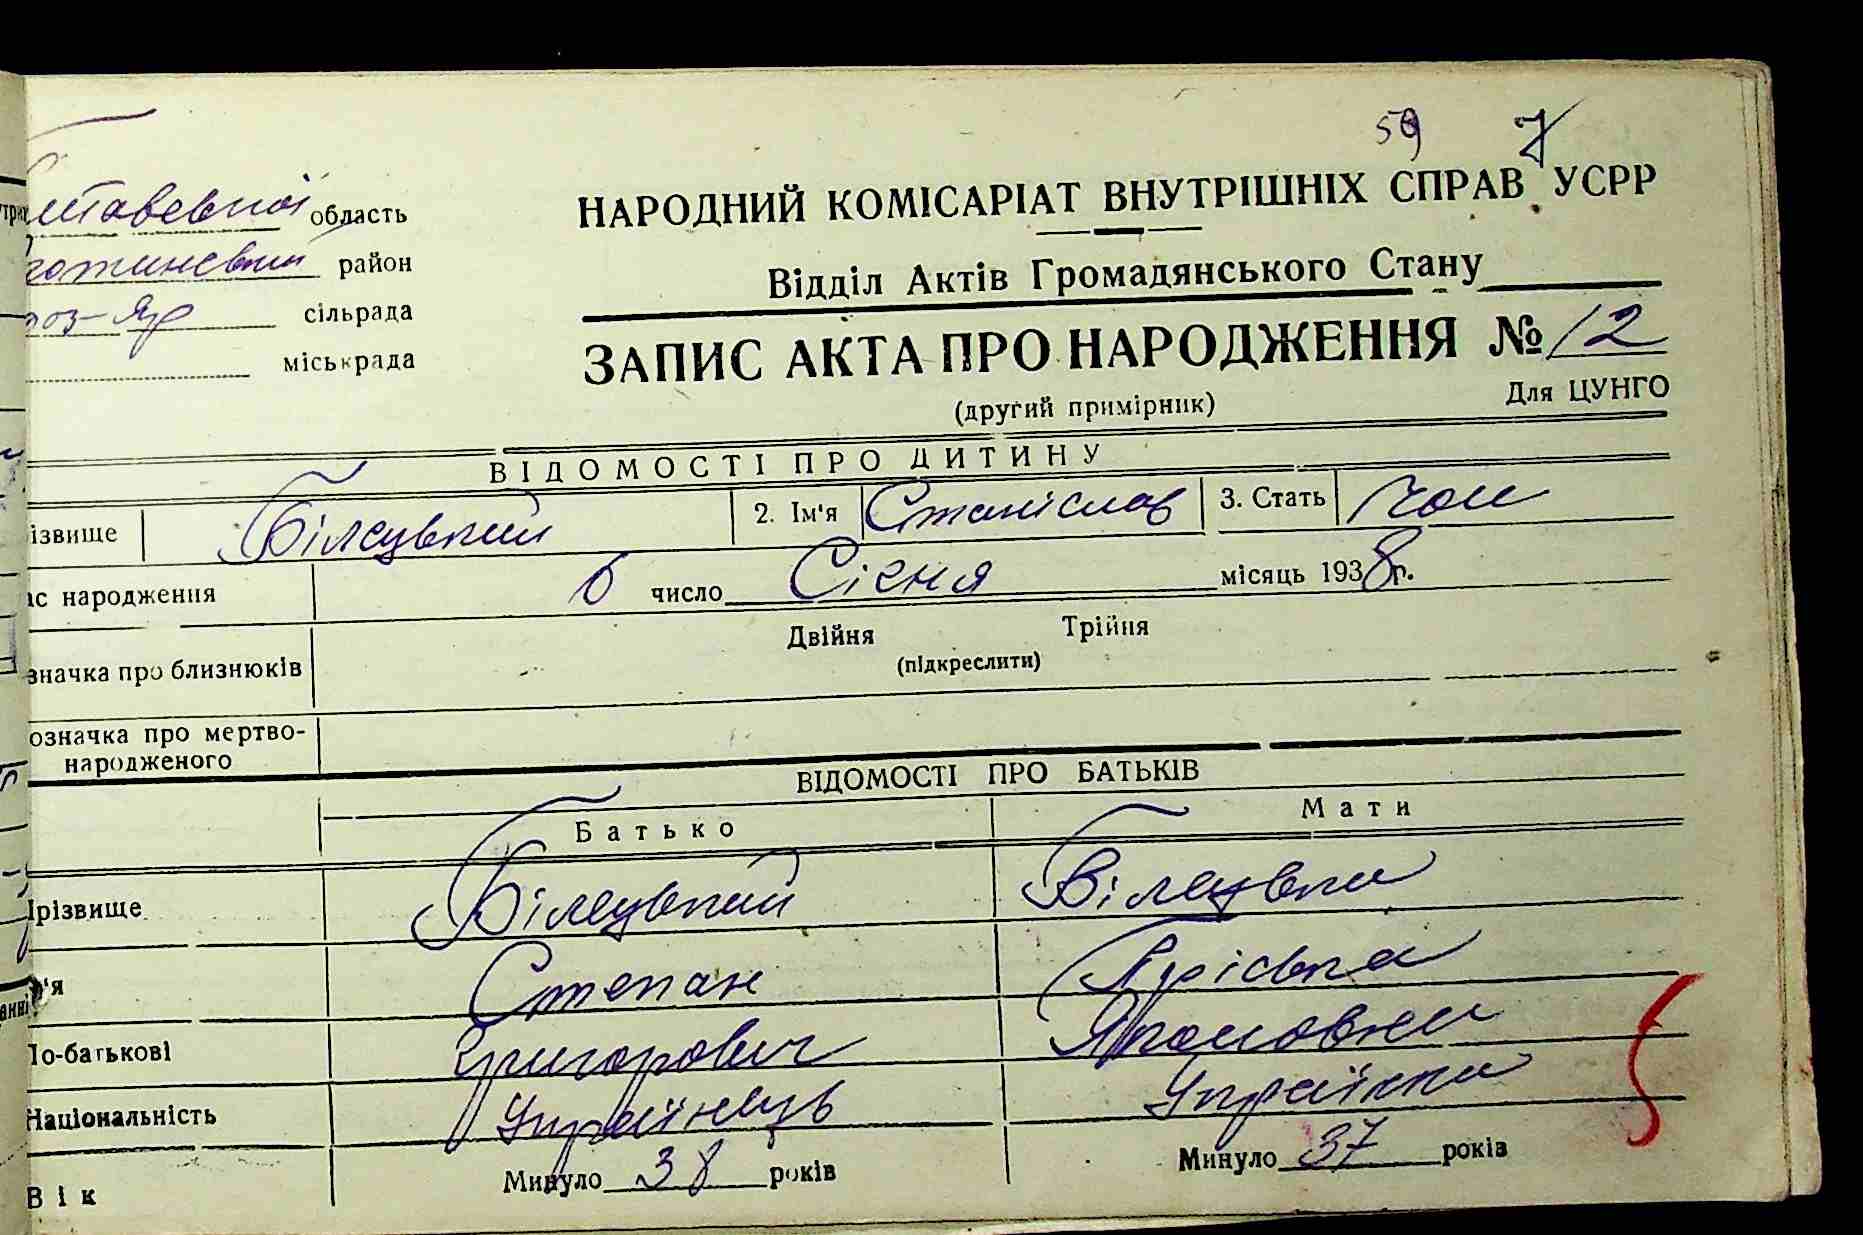 59 7
область
район
сільрада
міськрада
НАРОДНИЙ КОМІСАРІАТ ВНУТРІШНІХ СПРАВ УСРР
Відділ Актів Громадянського Стану
ЗАПИС АКТА ПРО НАРОДЖЕННЯ № 12
(другий примірник)
Для ЦУНГО
ВІДОМОСТІ ПРО ДИТИНУ
ізвище Білецький 2. Ім'я Станіслав 3. Стать чол
ас народження 6 число Січня місяць 1938 р.
значка про близнюків Двійня Трійня
(підкреслити)
означка про мертво-
народженого
ВІДОМОСТІ ПРО БАТЬКІВ
Батько Мати
Ірізвище Білецький Білецька
'я Степан
По-батькові Григорович
Національність Українець Українка
Вік Минуло 38 років Минуло 37 років